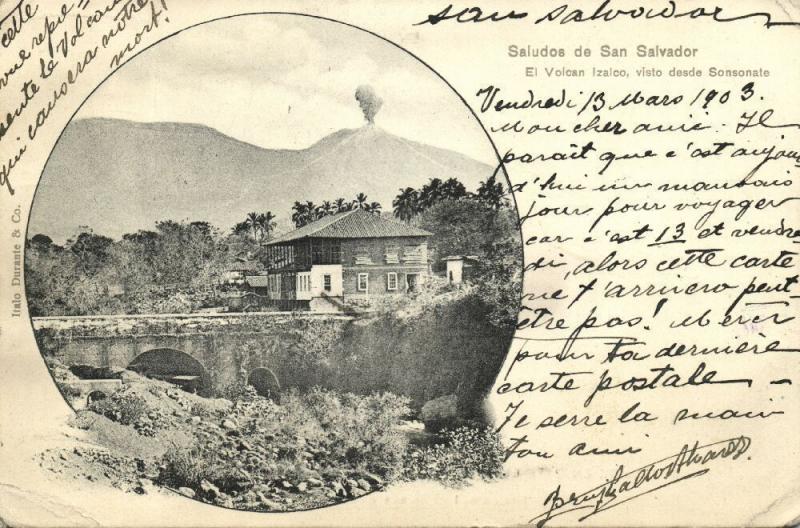 San Salvador
Saludos de San Salvador
El Volcan Izalco, visto desde Sonsonate
Vendredi 13 Mars 1903.
Mon cher ami. Il
parait que c'est aujour
d'hui un mauvais
jour pour voyager
car c'est 13 et vendre
di, alors cette carte
ne t'arrivera peut-
être pas! Merci
pour ta dernière
carte postale —
Je serre la main
ton ami
cette
vue repré
sente le Volcan
qui causera notre
mort!
Italo Durante & Co.